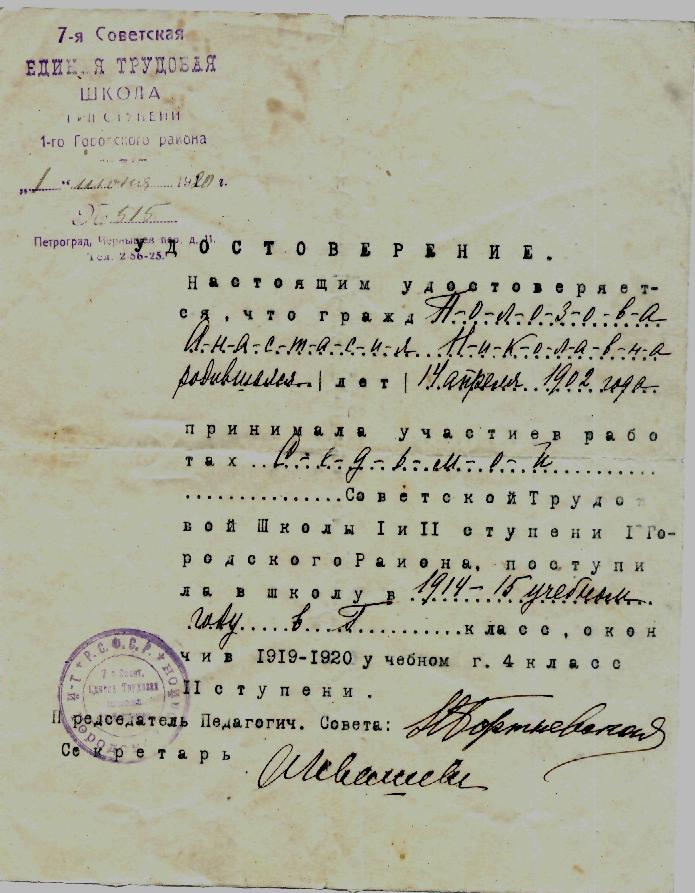 7-я Советская
ЕДИНАЯ ТРУДОВАЯ
ШКОЛА
I и II СТУПЕНИ
1-го Городского района
„1“ июня 1920 г.
№ 515
Петроград, Чернышев пер. д. 11.
Тел. 2-56-25.
УДОСТОВЕРЕНИЕ.
Настоящим удостоверяет-
ся, что гражд. Полозова
Анастасия Николавна
родившаяся | лет | 14 апреля 1902 года
принимала участие в рабо
тах Седьмой
Советской Трудо
вой Школы I и II ступени I Го-
родского Района, поступи
ла в школу в 1914-15 учебном
году в класс, окон
чив 1919-1920 учебном г. 4 класс
II ступени.
Председатель Педагогич. Совета:
Секретарь
Р.С.Ф.С.Р.
7-я Совет.
Единая Трудовая